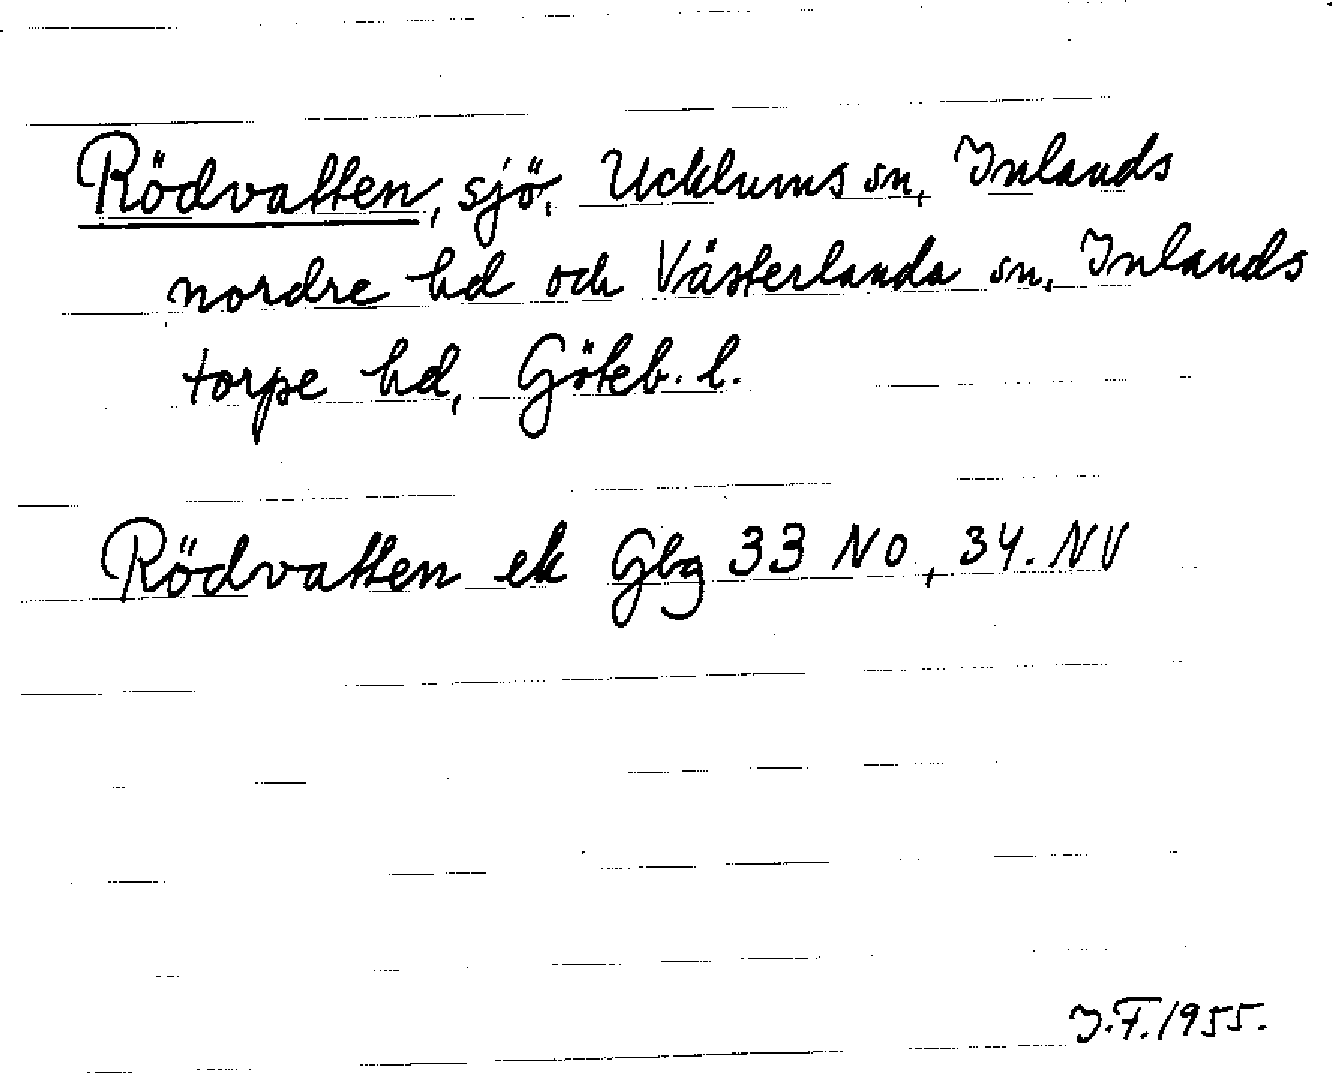 Rödvatten, sjö, Ucklums sn, Inlands
nordre hd och Västerlanda sn, Inlands
torpe hd, Göteb. l.
Rödvatten ek Gbg 33 NO, 34. NV
I.F. 1955.